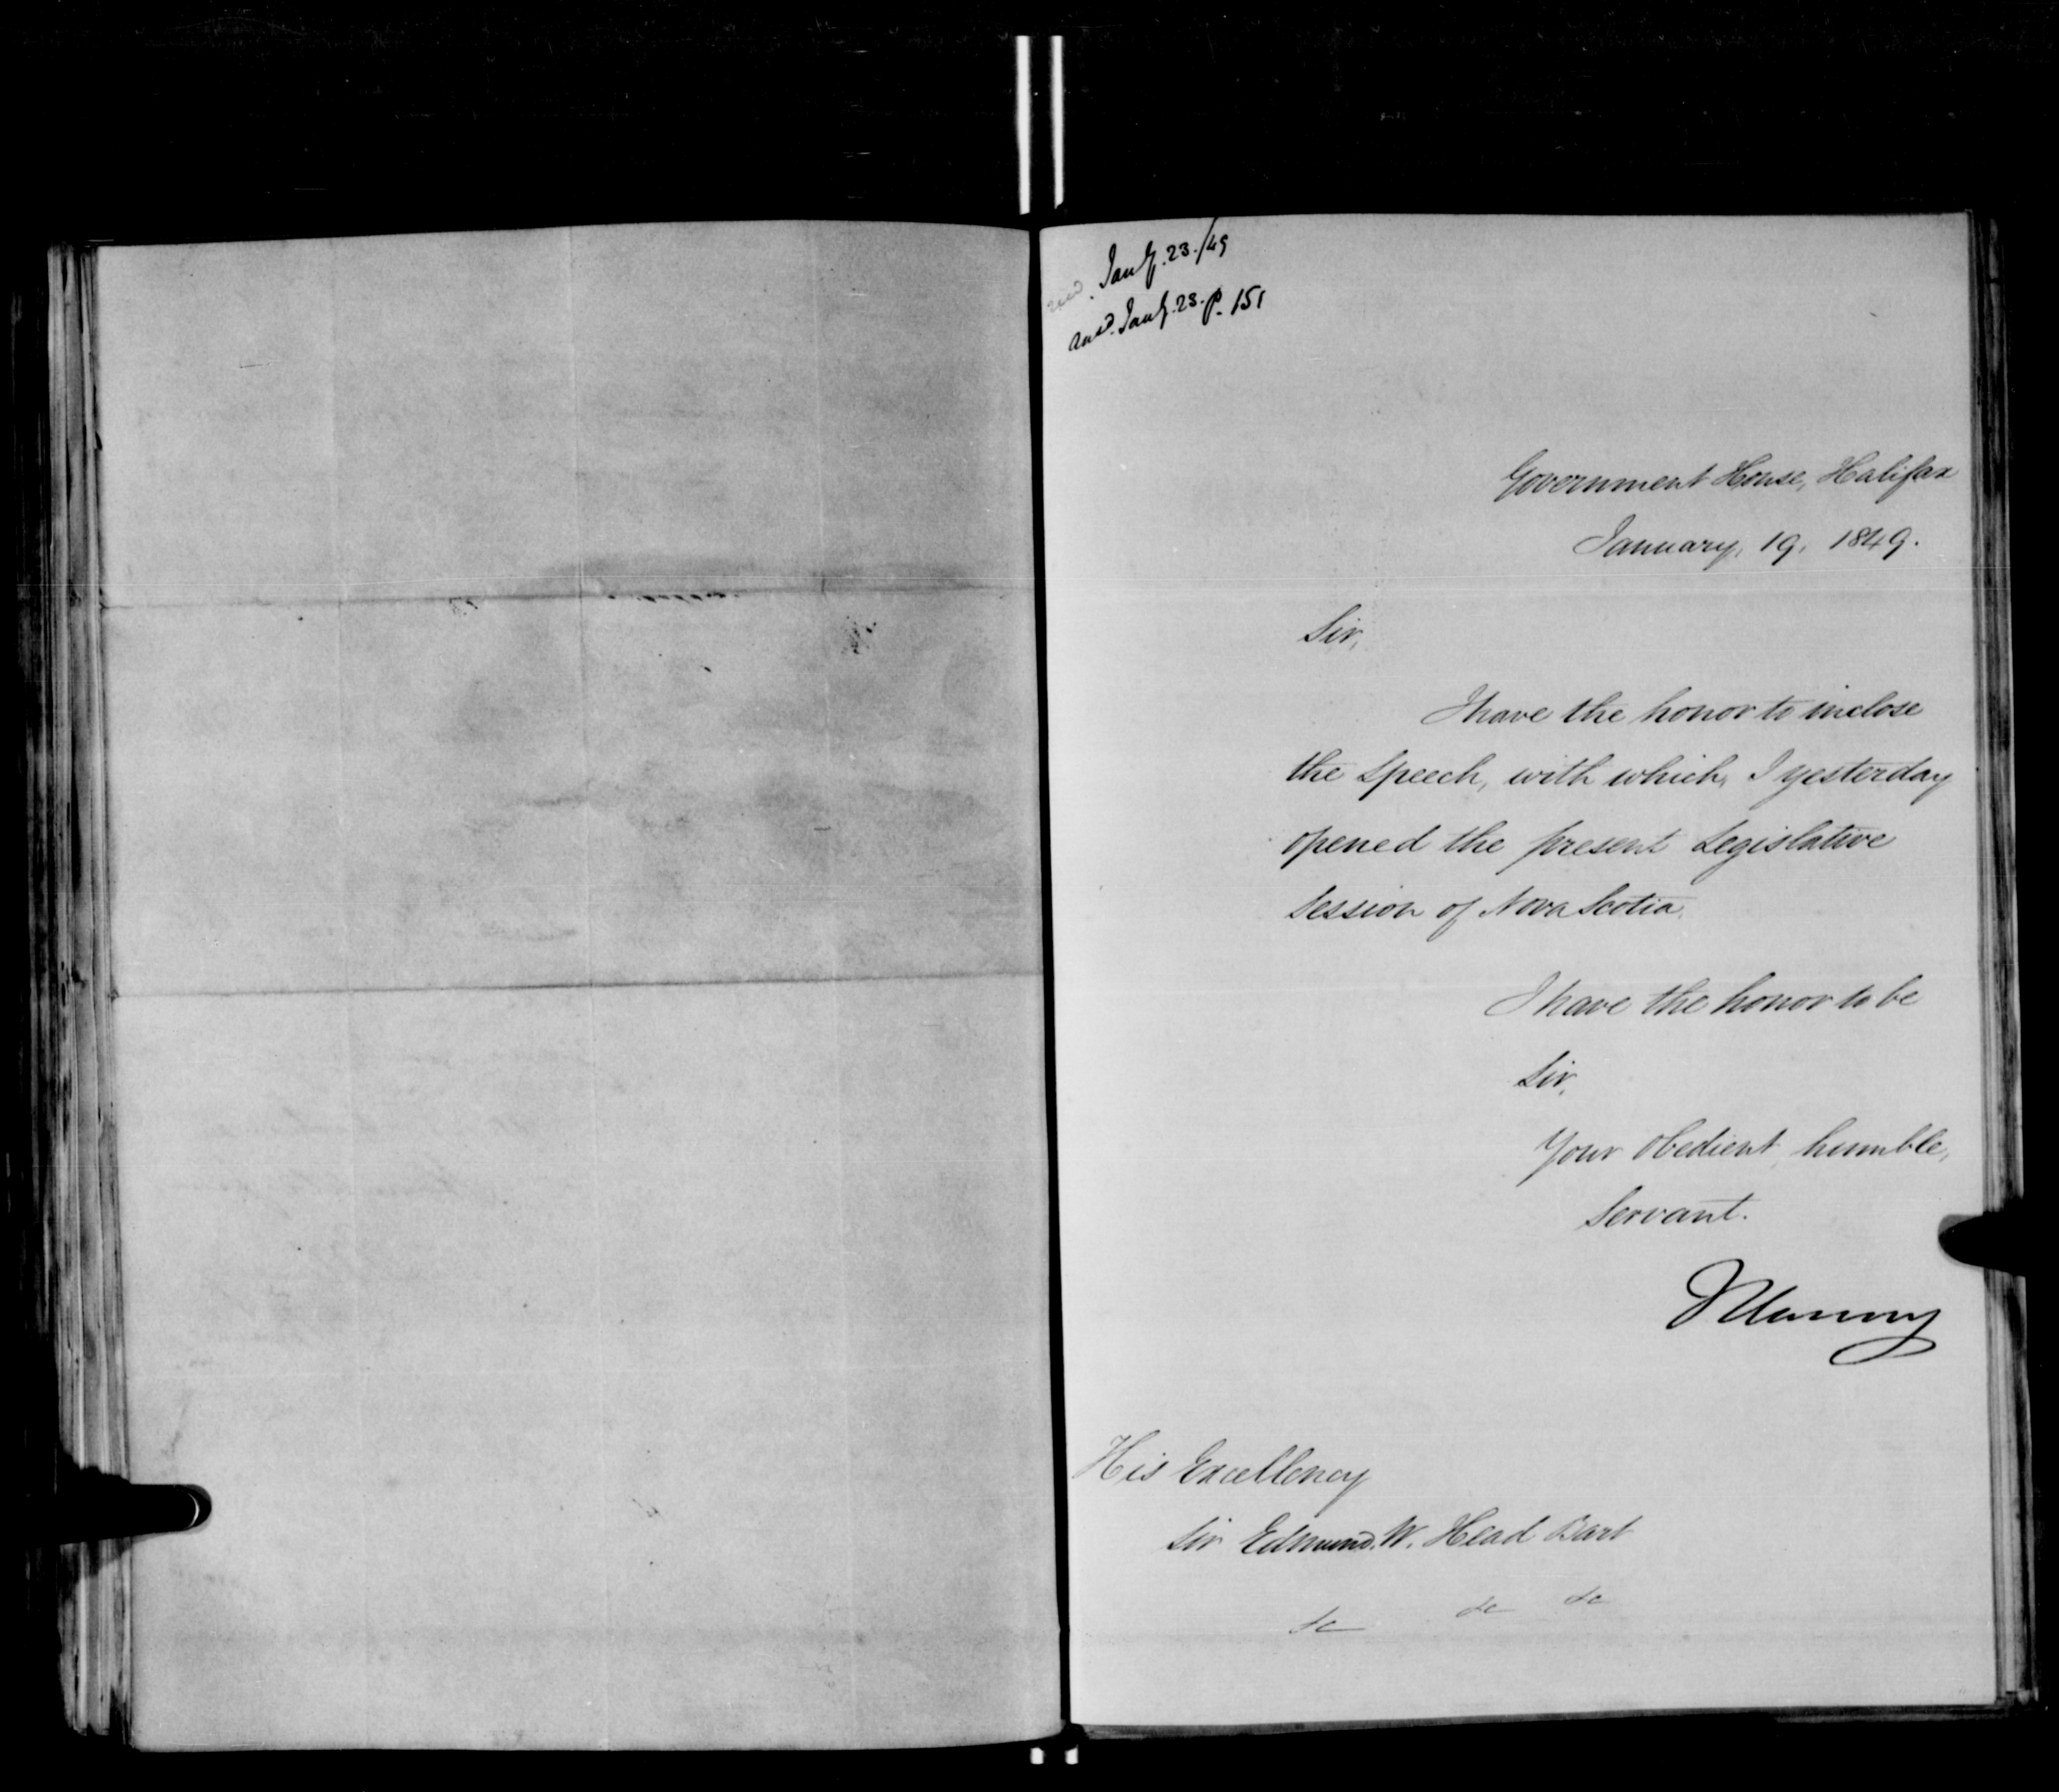 recd. Jany. 23./49
ansd. Jany. 23. p. 151
Government House, Halifax
January, 19, 1849.
Sir,
I have the honor to inclose
the Speech, with which, I yesterday
opened the present Legislative
Session of Nova Scotia.
I have the honor to be
Sir,
Your obedient humble,
Servant.
His Excellency
Sir Edmund. W. Head Bart
&c &c &c